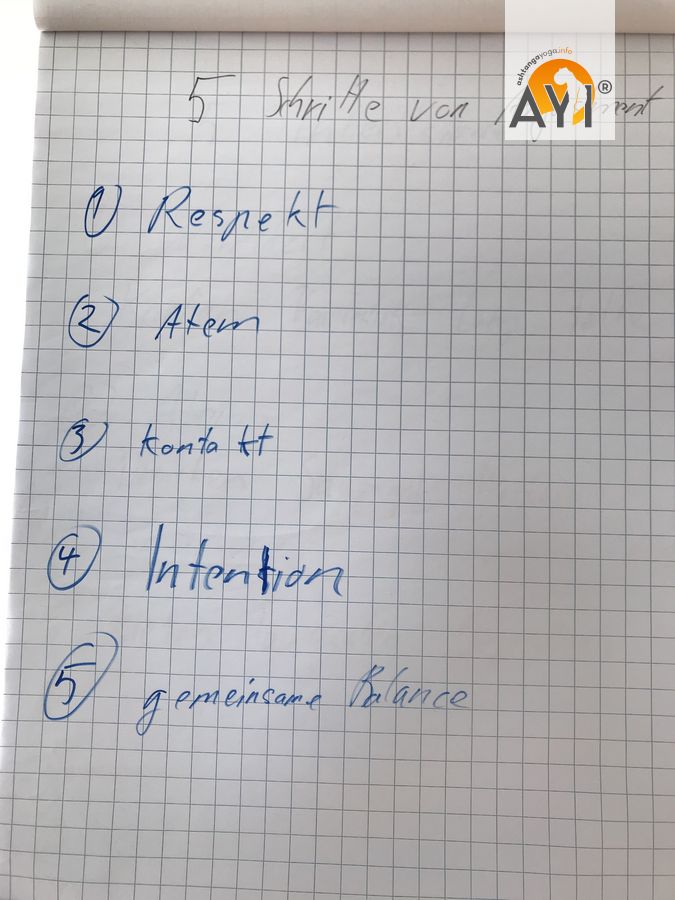 ashtangayoga.info
AYI®
5 Schritte von
① Respekt
② Atem
③ Kontakt
④ Intention
⑤ gemeinsame Balance